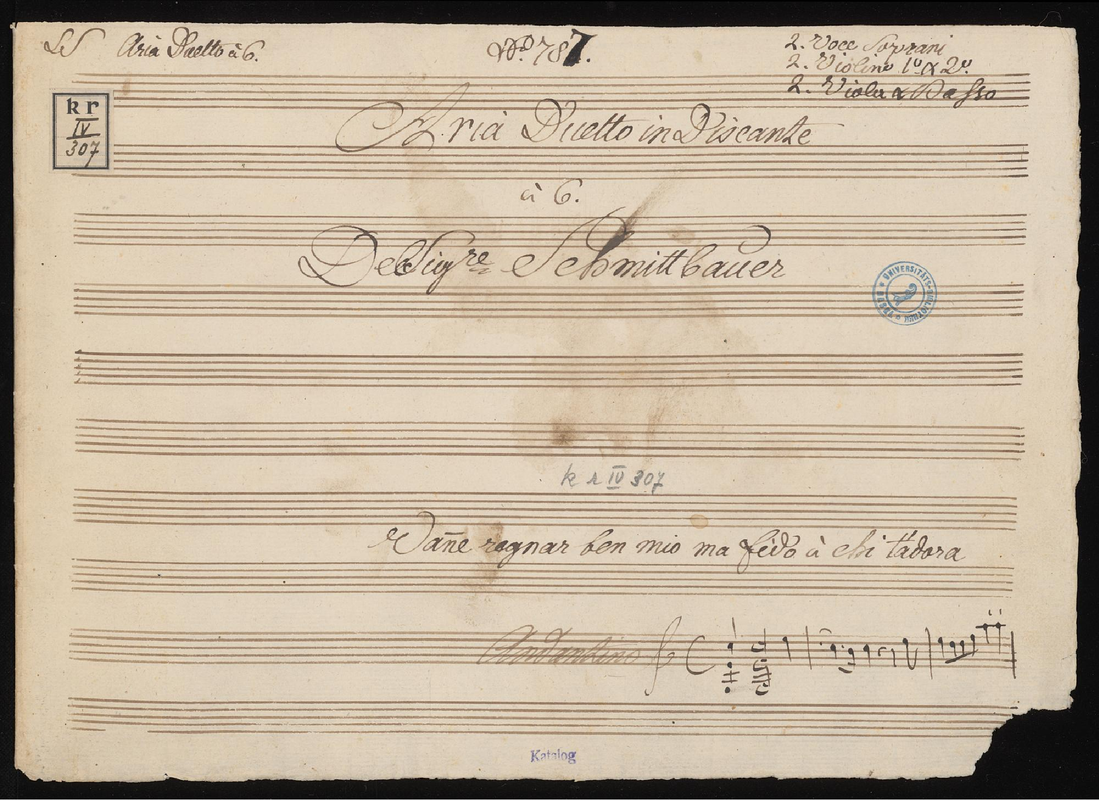 Aria Duetto à 6.
N.º 787.
2. Voce Soprani
2. Violino 1º & 2º.
2. Viola & Basso
kr
IV
307
Aria Duetto in Discante
à 6.
Del Sigre Schmittbauer
UNIVERSITÄTS-BIBLIOTHEK BASEL
kr IV 307
Vañe regnar ben mio ma fido à chi t'adora
Andantino
Katalog